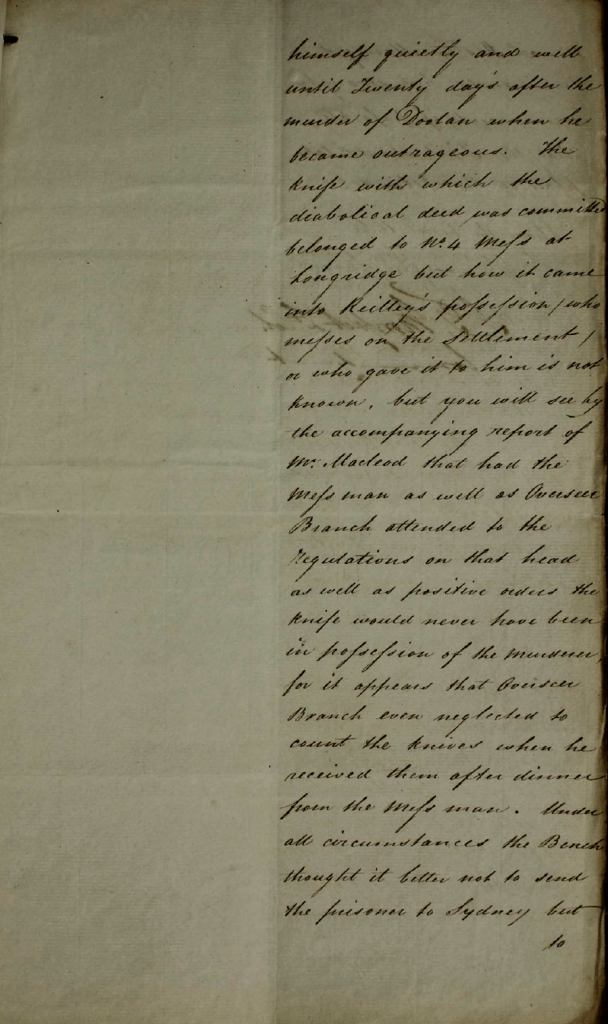 himself quietly and well
until Twenty day's after the
murder of Doolan when he
became outrageous. The
knife with which the
diabolical deed was committed
belonged to No. 4 Mess at
Longridge but how it came
into Reilley's possession / who
messes on the Settlement /
or who gave it to him is not
known, but you will see by
the accompanying report of
Mr. Macleod that had the
Mess man as well as Overseer
Branch attended to the
Regulations on that head
as well as positive orders the
knife would never have been
in possession of the murderer,
for it appears that Overseer
Branch even neglected to
count the knives when he
received them after dinner
from the Mess man. Under
all circumstances the Bench
thought it better not to send
the prisoner to Sydney but
to